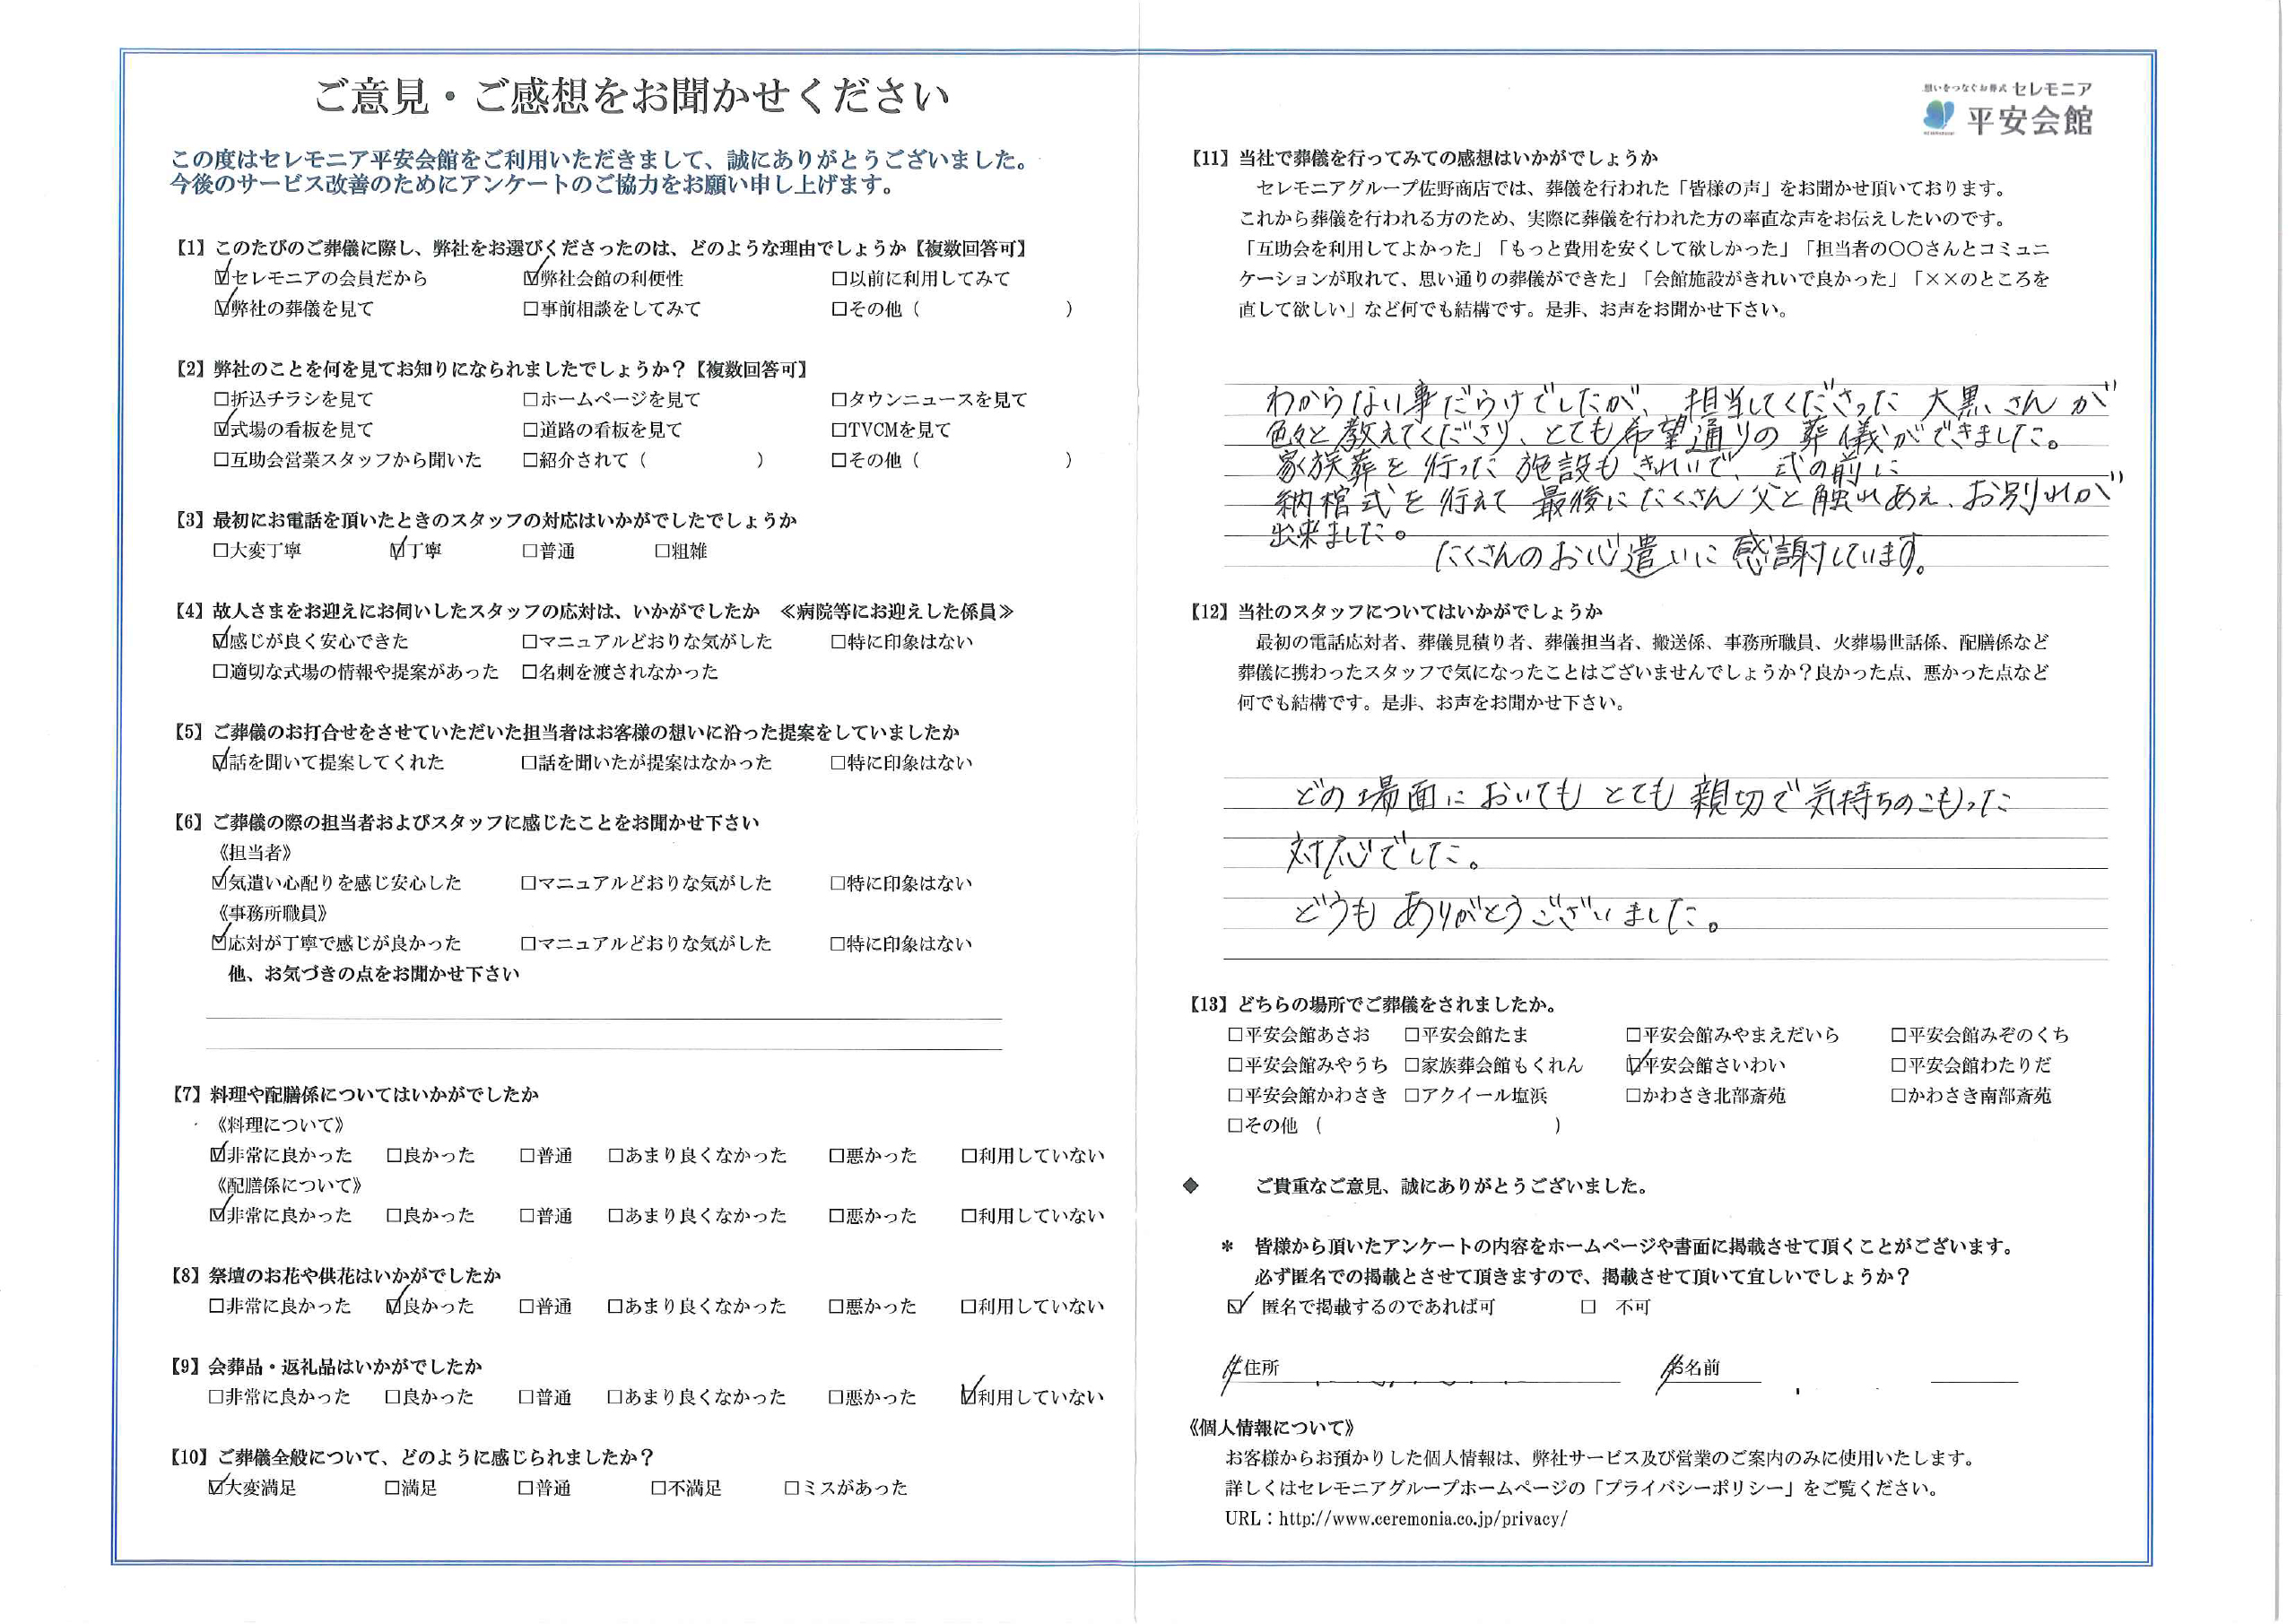 ご意見・ご感想をお聞かせください
この度はセレモニア平安会館をご利用いただきまして、誠にありがとうございました。
今後のサービス改善のためにアンケートのご協力をお願い申し上げます。
【1】このたびのご葬儀に際し、弊社をお選びくださったのは、どのような理由でしょうか【複数回答可】
☑セレモニアの会員だから ☑弊社会館の利便性 □以前に利用してみて
☑弊社の葬儀を見て □事前相談をしてみて □その他（ ）
【2】弊社のことを何を見てお知りになられましたでしょうか？【複数回答可】
□折込チラシを見て □ホームページを見て □タウンニュースを見て
☑式場の看板を見て □道路の看板を見て □TVCMを見て
□互助会営業スタッフから聞いた □紹介されて（ ） □その他（ ）
【3】最初にお電話を頂いたときのスタッフの対応はいかがでしたでしょうか
□大変丁寧 ☑丁寧 □普通 □粗雑
【4】故人さまをお迎えにお伺いしたスタッフの応対は、いかがでしたか ≪病院等にお迎えした係員≫
☑感じが良く安心できた □マニュアルどおりな気がした □特に印象はない
□適切な式場の情報や提案があった □名刺を渡されなかった
【5】ご葬儀のお打合せをさせていただいた担当者はお客様の想いに沿った提案をしていましたか
☑話を聞いて提案してくれた □話を聞いたが提案はなかった □特に印象はない
【6】ご葬儀の際の担当者およびスタッフに感じたことをお聞かせ下さい
《担当者》
☑気遣い心配りを感じ安心した □マニュアルどおりな気がした □特に印象はない
《事務所職員》
☑応対が丁寧で感じが良かった □マニュアルどおりな気がした □特に印象はない
他、お気づきの点をお聞かせ下さい
【7】料理や配膳係についてはいかがでしたか
《料理について》
☑非常に良かった □良かった □普通 □あまり良くなかった □悪かった □利用していない
《配膳係について》
☑非常に良かった □良かった □普通 □あまり良くなかった □悪かった □利用していない
【8】祭壇のお花や供花はいかがでしたか
□非常に良かった ☑良かった □普通 □あまり良くなかった □悪かった □利用していない
【9】会葬品・返礼品はいかがでしたか
□非常に良かった □良かった □普通 □あまり良くなかった □悪かった ☑利用していない
【10】ご葬儀全般について、どのように感じられましたか？
☑大変満足 □満足 □普通 □不満足 □ミスがあった
想いをつなぐお葬式 セレモニア
平安会館
【11】当社で葬儀を行ってみての感想はいかがでしょうか
セレモニアグループ佐野商店では、葬儀を行われた「皆様の声」をお聞かせ頂いております。
これから葬儀を行われる方のため、実際に葬儀を行われた方の率直な声をお伝えしたいのです。
「互助会を利用してよかった」「もっと費用を安くして欲しかった」「担当者の〇〇さんとコミュニ
ケーションが取れて、思い通りの葬儀ができた」「会館施設がきれいで良かった」「××のところを
直して欲しい」など何でも結構です。是非、お声をお聞かせ下さい。
わからない事だらけでしたが、担当してくださった 大黒さんが
色々と教えてくださり、とても希望通りの葬儀ができました。
家族葬を行った施設もきれいで、式の前に
納棺式を行えて最後にたくさん父と触れあえ、お別れが
出来ました。
たくさんのお心遣いに感謝しています。
【12】当社のスタッフについてはいかがでしょうか
最初の電話応対者、葬儀見積り者、葬儀担当者、搬送係、事務所職員、火葬場世話係、配膳係など
葬儀に携わったスタッフで気になったことはございませんでしょうか？良かった点、悪かった点など
何でも結構です。是非、お声をお聞かせ下さい。
どの場面においてもとても親切で気持ちのこもった
対応でした。
どうもありがとうございました。
【13】どちらの場所でご葬儀をされましたか。
□平安会館あさお □平安会館たま □平安会館みやまえだいら □平安会館みぞのくち
□平安会館みやうち □家族葬会館もくれん ☑平安会館さいわい □平安会館わたりだ
□平安会館かわさき □アクイール塩浜 □かわさき北部斎苑 □かわさき南部斎苑
□その他 （ ）
◆ ご貴重なご意見、誠にありがとうございました。
＊ 皆様から頂いたアンケートの内容をホームページや書面に掲載させて頂くことがございます。
必ず匿名での掲載とさせて頂きますので、掲載させて頂いて宜しいでしょうか？
☑ 匿名で掲載するのであれば可 □ 不可
住所 お名前
《個人情報について》
お客様からお預かりした個人情報は、弊社サービス及び営業のご案内のみに使用いたします。
詳しくはセレモニアグループホームページの「プライバシーポリシー」をご覧ください。
URL：http://www.ceremonia.co.jp/privacy/